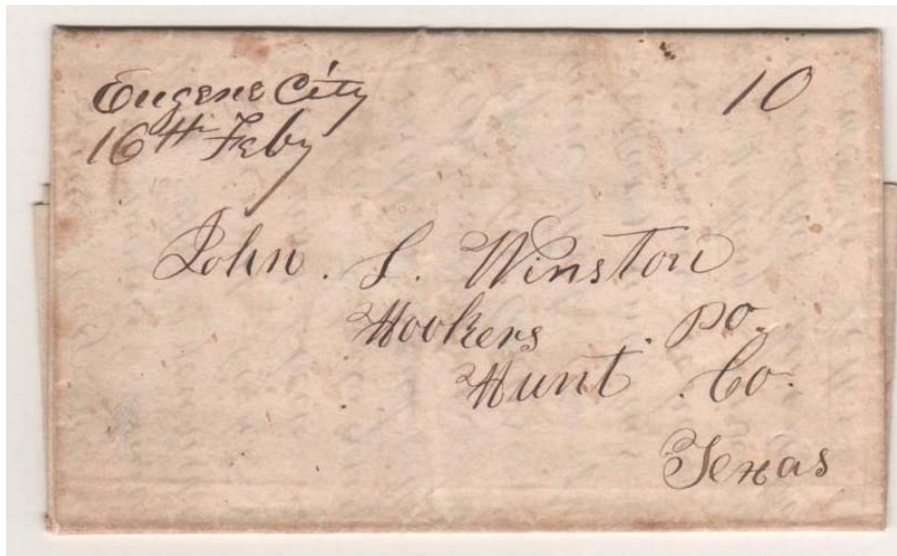 Eugene City
16th Feby
10
John. S. Winston
Hookers. PO.
Hunt. Co.
Texas